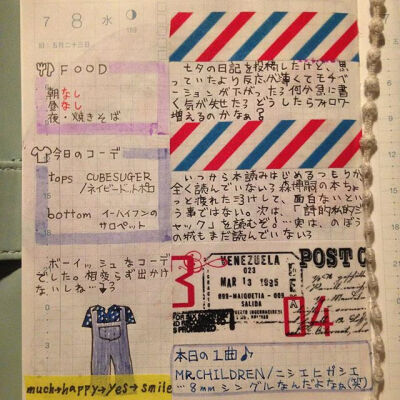 7
8 水
旧:五月二十三日
FOOD
朝なし
昼なし
夜・焼きそば
今日のコーデ
tops CUBESUGER
/ネイビードットポロ
bottom イーハイフンの
サロペット
ボーイッシュなコーデ
でした。相変らず出かけ
ないしね…
much→happy→yes→smile
七夕の日記を投稿したけど、思
っていたより反応が薄くてモチベ
ーションが下がった3 何か急に書
く気が失せた3 どうしたらフォロワー
増えるのかなぁ?
いつから本読みはじめるつもりか
全く読んでいない3 森博嗣の本ちょ
っと疲れた3 けして、面白いとい
う事ではない。次は、「詩的私的ジ
ャック」を読むぞ!…実は、のぼう
の城もまだ読んでいない3
VENEZUELA
023
MAR 13 1995
099-MAIQUETIA-009
SALIDA
POSTC
04
本日の1曲♪
MR.CHILDREN/ニシエヒガシエ
…8mmシングルなんだよなぁ(笑)